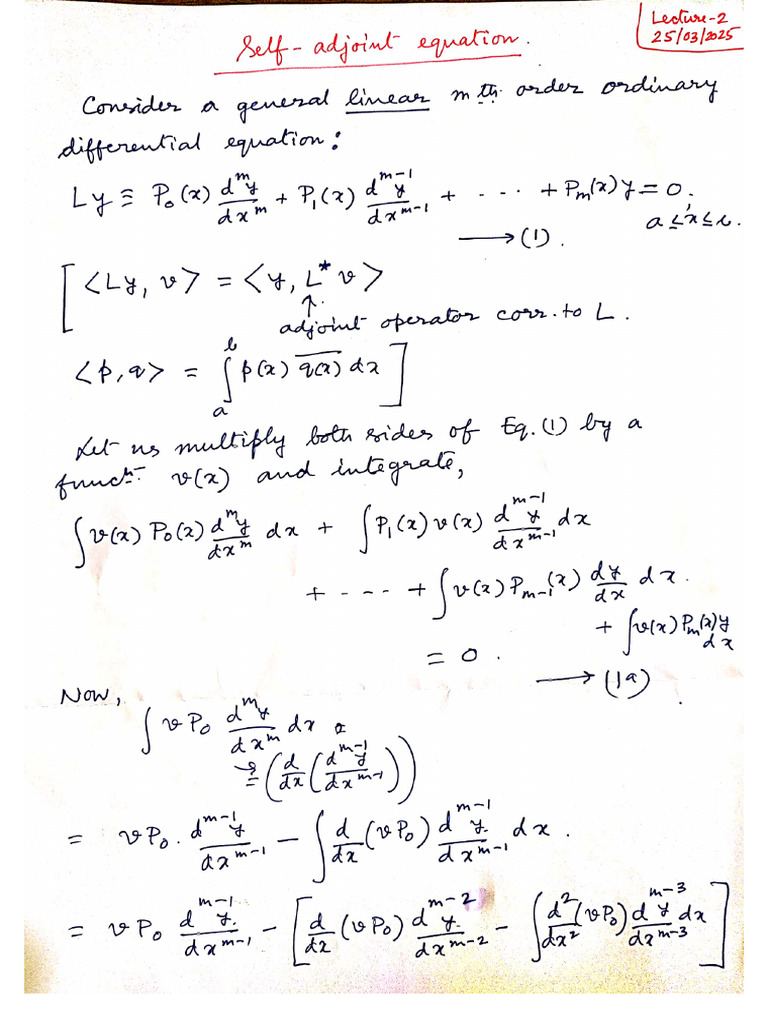 Lecture-2
25/03/2025
Self-adjoint equation.
Consider a general linear mth order ordinary
differential equation:
Ly ≡ P₀(x) d^m y/dx^m + P₁(x) d^(m-1) y/dx^(m-1) + - - - + Pₘ(x) y = 0.
a ≤ x ≤ b.
⟶ (1).
[ <Ly, v> = <y, L* v>
↑
adjoint operator corr. to L.
<p, q> = ∫_a^b p(x) \overline{q(x)} dx ]
Let us multiply both sides of Eq. (1) by a
functⁿ. v(x) and integrate,
∫ v(x) P₀(x) d^m y/dx^m dx + ∫ P₁(x) v(x) d^(m-1) y/dx^(m-1) dx
+ - - - + ∫ v(x) Pₘ₋₁(x) dy/dx dx.
+ ∫ v(x) Pₘ(x) y dx
= 0.
⟶ (1a)
Now,
∫ v P₀ d^m y/dx^m dx
= (d/dx (d^(m-1) y/dx^(m-1)))
= v P₀ . d^(m-1) y/dx^(m-1) − ∫ d/dx (v P₀) d^(m-1) y/dx^(m-1) dx.
= v P₀ d^(m-1) y/dx^(m-1) − [ d/dx (v P₀) d^(m-2) y/dx^(m-2) − ∫ d²/dx² (v P₀) d^(m-3) y/dx^(m-3) dx ]